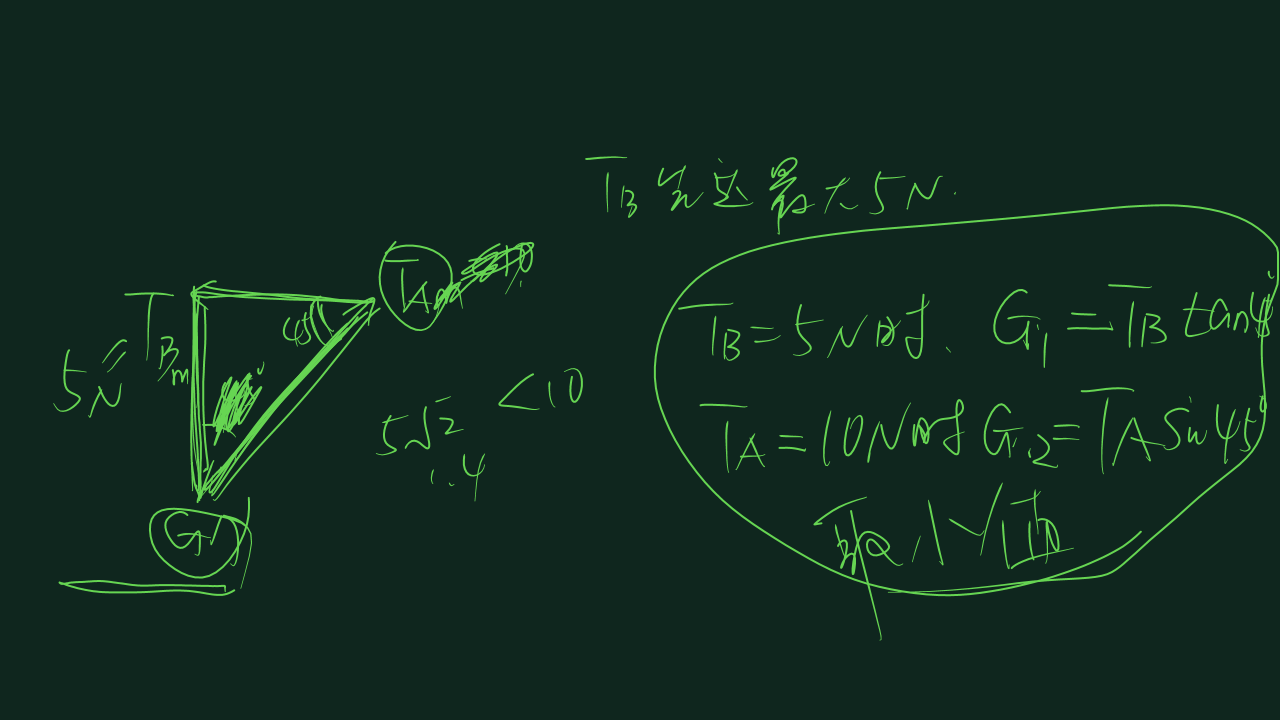 T_B 先达最大 5N.
T_A
T_Bm
5N
45°
G
5√2 < 10
1.4
T_B = 5N时、 G_1 = T_B tan45°
T_A = 10N时 G_2 = T_A sin45°
取小值